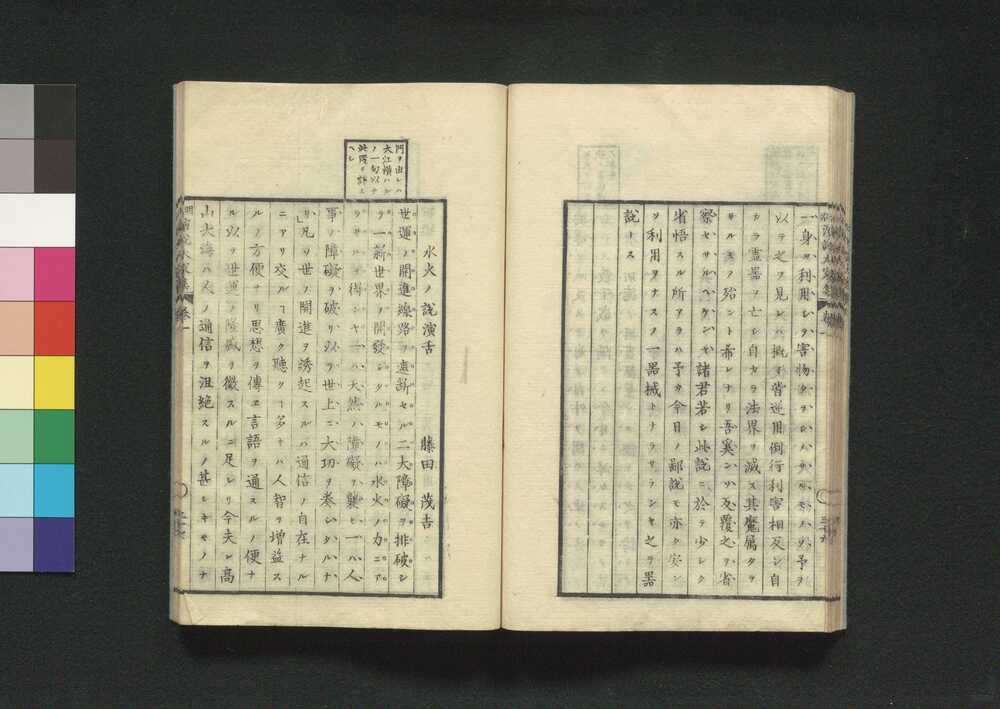 一身ヲ利用シヲ害物タラシムルモノハアラサルナリ予ヲ
以テ之ヲ見レハ概子皆逆用倒行利害相反シ自
カラ霊器ヲ亡シ自カラ法界ヲ滅ス其魔属タラ
サルモノ殆ント希レナリ吾奚ンソ反覆之ヲ省
察セサルヘケンヤ諸君若シ此説ニ於テ少シク
省悟スル所アラハ予カ今日ノ鄙説モ亦タ安ン
ソ利用ヲナスノ一器械トナラサランヤ之ヲ器
説トス
門ヲ出レハ
大江横ハル
ノ一句以テ
ヘシ
水火ノ説演舌 藤田茂吉
世運ノ開進線路ヲ遮断セル二大障礙ヲ排破シ
テ一新世界ヲ開發シタルモノハ水火ノ力ニアラ
ラサルヲ得ンヤ一ハ天然ノ障礙ヲ襲ヒ一ハ人
事ノ障礙ヲ破リ以テ世上ニ大功ヲ奏シタルナ
リ凡ソ世ノ開進ヲ誘起スルハ通信ノ自在ナル
ニアリ交ルヿ廣ク聴クヿ多キハ人智ヲ増益ス
ルノ方便ナリ思想ヲ傳ヱ言語ヲ通スルノ便ナ
ル以テ世運ノ隆盛ヲ徴スルニ足レリ今夫レ高
山大海ハ人ノ通信ヲ沮絶スルノ甚シキモノナ